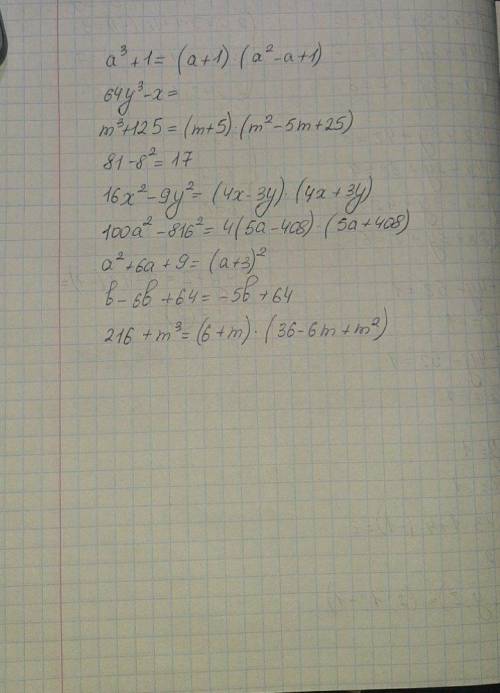 a³+1 = (a+1)·(a²-a+1)
64y³-x=
m³+125 = (m+5)·(m²-5m+25)
81-8²=17
16x²-9y²= (4x-3y)·(4x+3y)
100a²-816²= 4(5a-408)·(5a+408)
a²+6a+9=(a+3)²
b-6b+64=-5b+64
216+m³=(6+m)·(36-6m+m²)